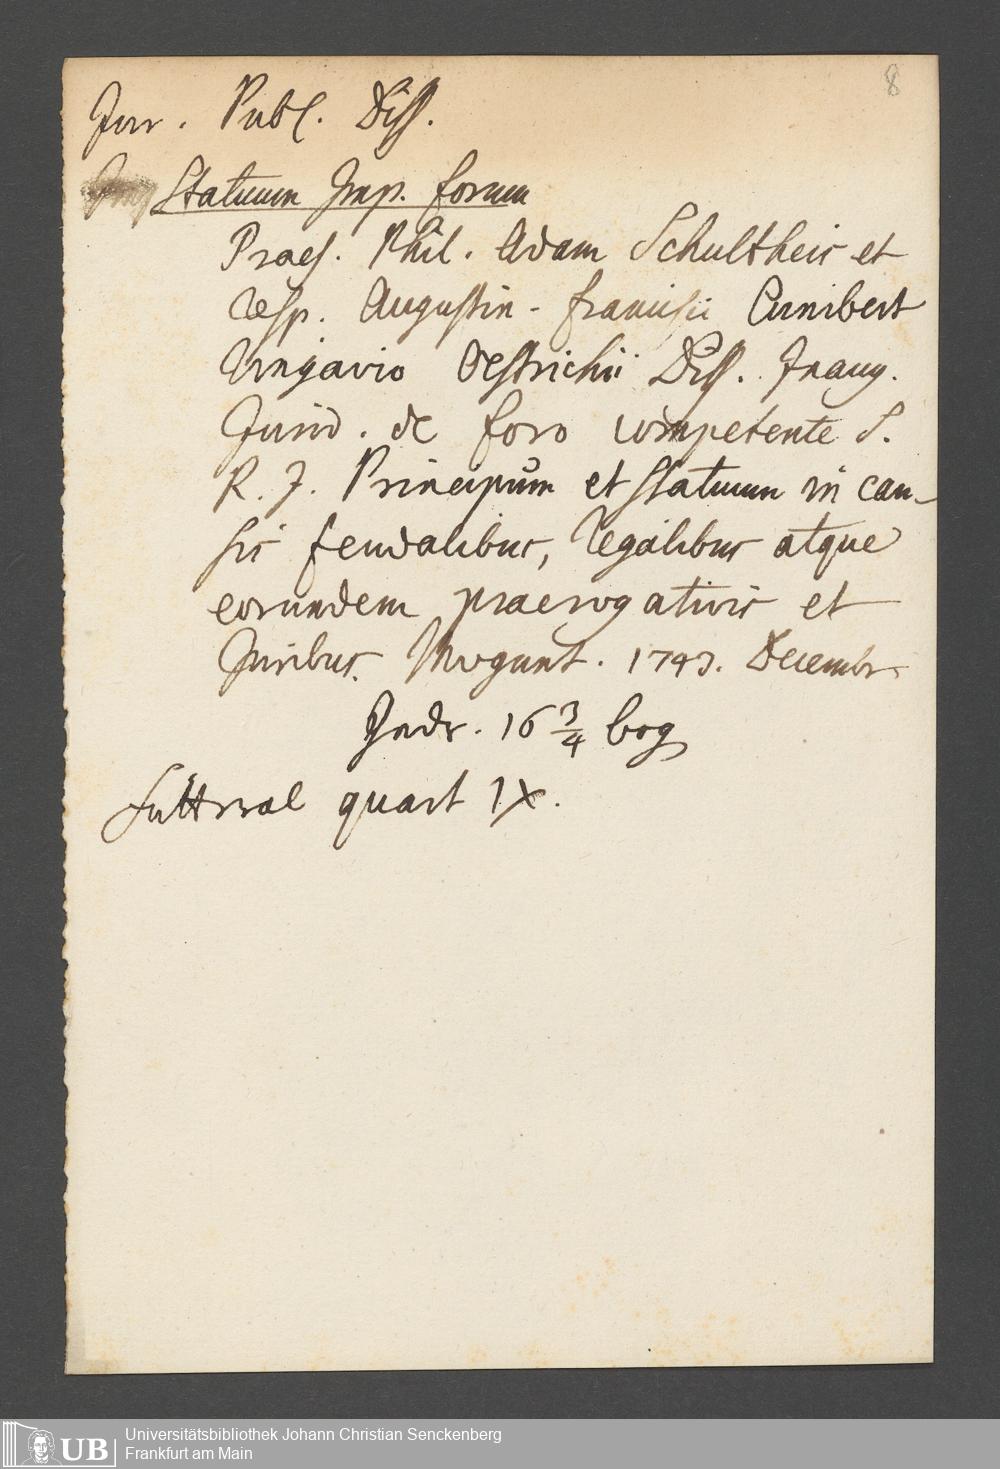 8
Jur. Publ. Diss.
Statuum Imp. forum
Praes. Phil. Adam Schultheis et
Resp. Augustin. Francisci Cunibert
Ungario Oestrichii Diss. Inaug.
Jurid. de foro competente S.
R. J. Principum et Statuum in cau-
sis feudalibus, Regalibus atque
eorundem praerogativis et
Juribus. Mogunt. 1743. Decembr.
16 3/4 bog
quart IX.
UB Universitätsbibliothek Johann Christian Senckenberg
Frankfurt am Main